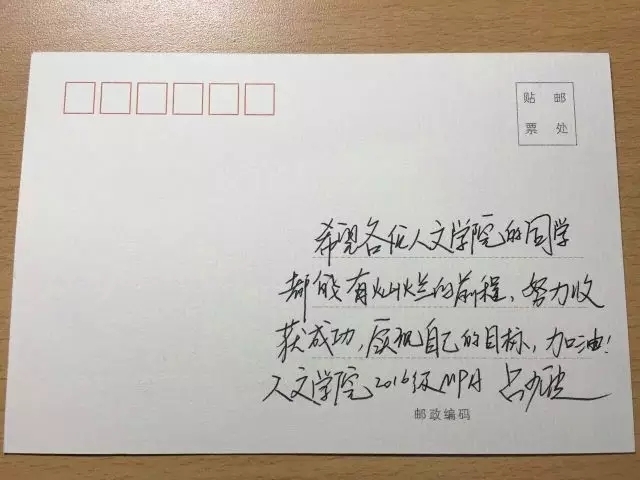 贴 邮
票 处
希望各位人文学院的同学
都能有灿烂的前程，努力收
获成功，实现自己的目标，加油！
人文学院2016级MPA 吕
邮政编码